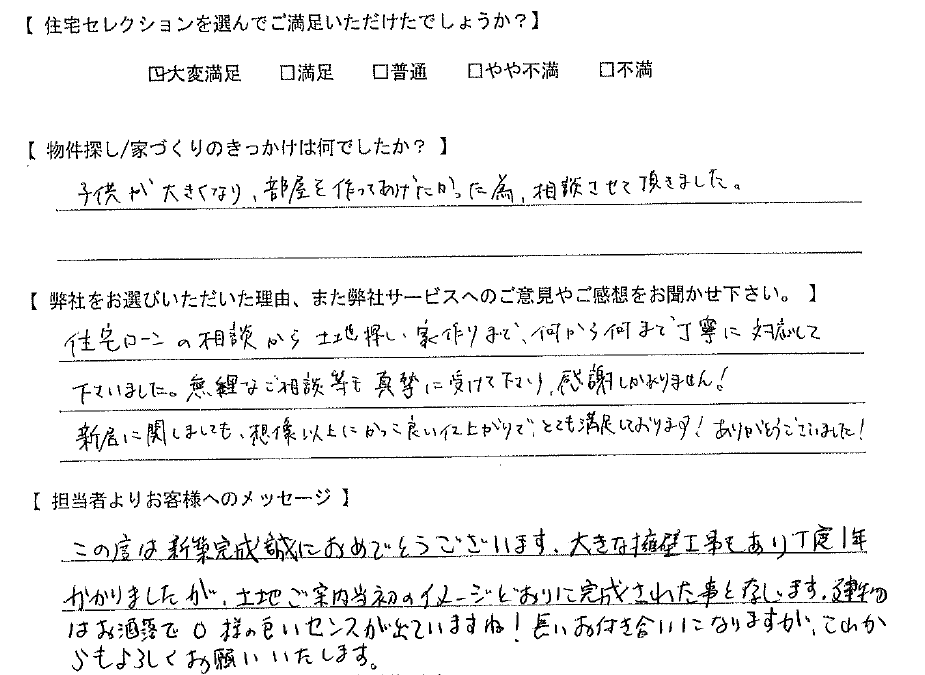 【 住宅セレクションを選んでご満足いただけたでしょうか？】
☑大変満足 □満足 □普通 □やや不満 □不満
【 物件探し/家づくりのきっかけは何でしたか？ 】
子供が大きくなり、部屋を作ってあげたかった為、相談させて頂きました。
【 弊社をお選びいただいた理由、また弊社サービスへのご意見やご感想をお聞かせ下さい。 】
住宅ローンの相談から土地探し、家作りまで、何から何まで丁寧に対応して
下さいました。無理なご相談等も真摯に受けて下さり、感謝しかありません！
新居に関しましても、想像以上にかっこ良い仕上がりで、とても満足しております！ありがとうございました！
【 担当者よりお客様へのメッセージ 】
この度は新築完成誠におめでとうございます。大きな擁壁工事もあり丁度1年
かかりましたが、土地ご案内当初のイメージどおりに完成された事と存じます。建物
はお洒落で O 様の良いセンスが出ていますね！長いお付き合いになりますが、これか
らもよろしくお願いいたします。